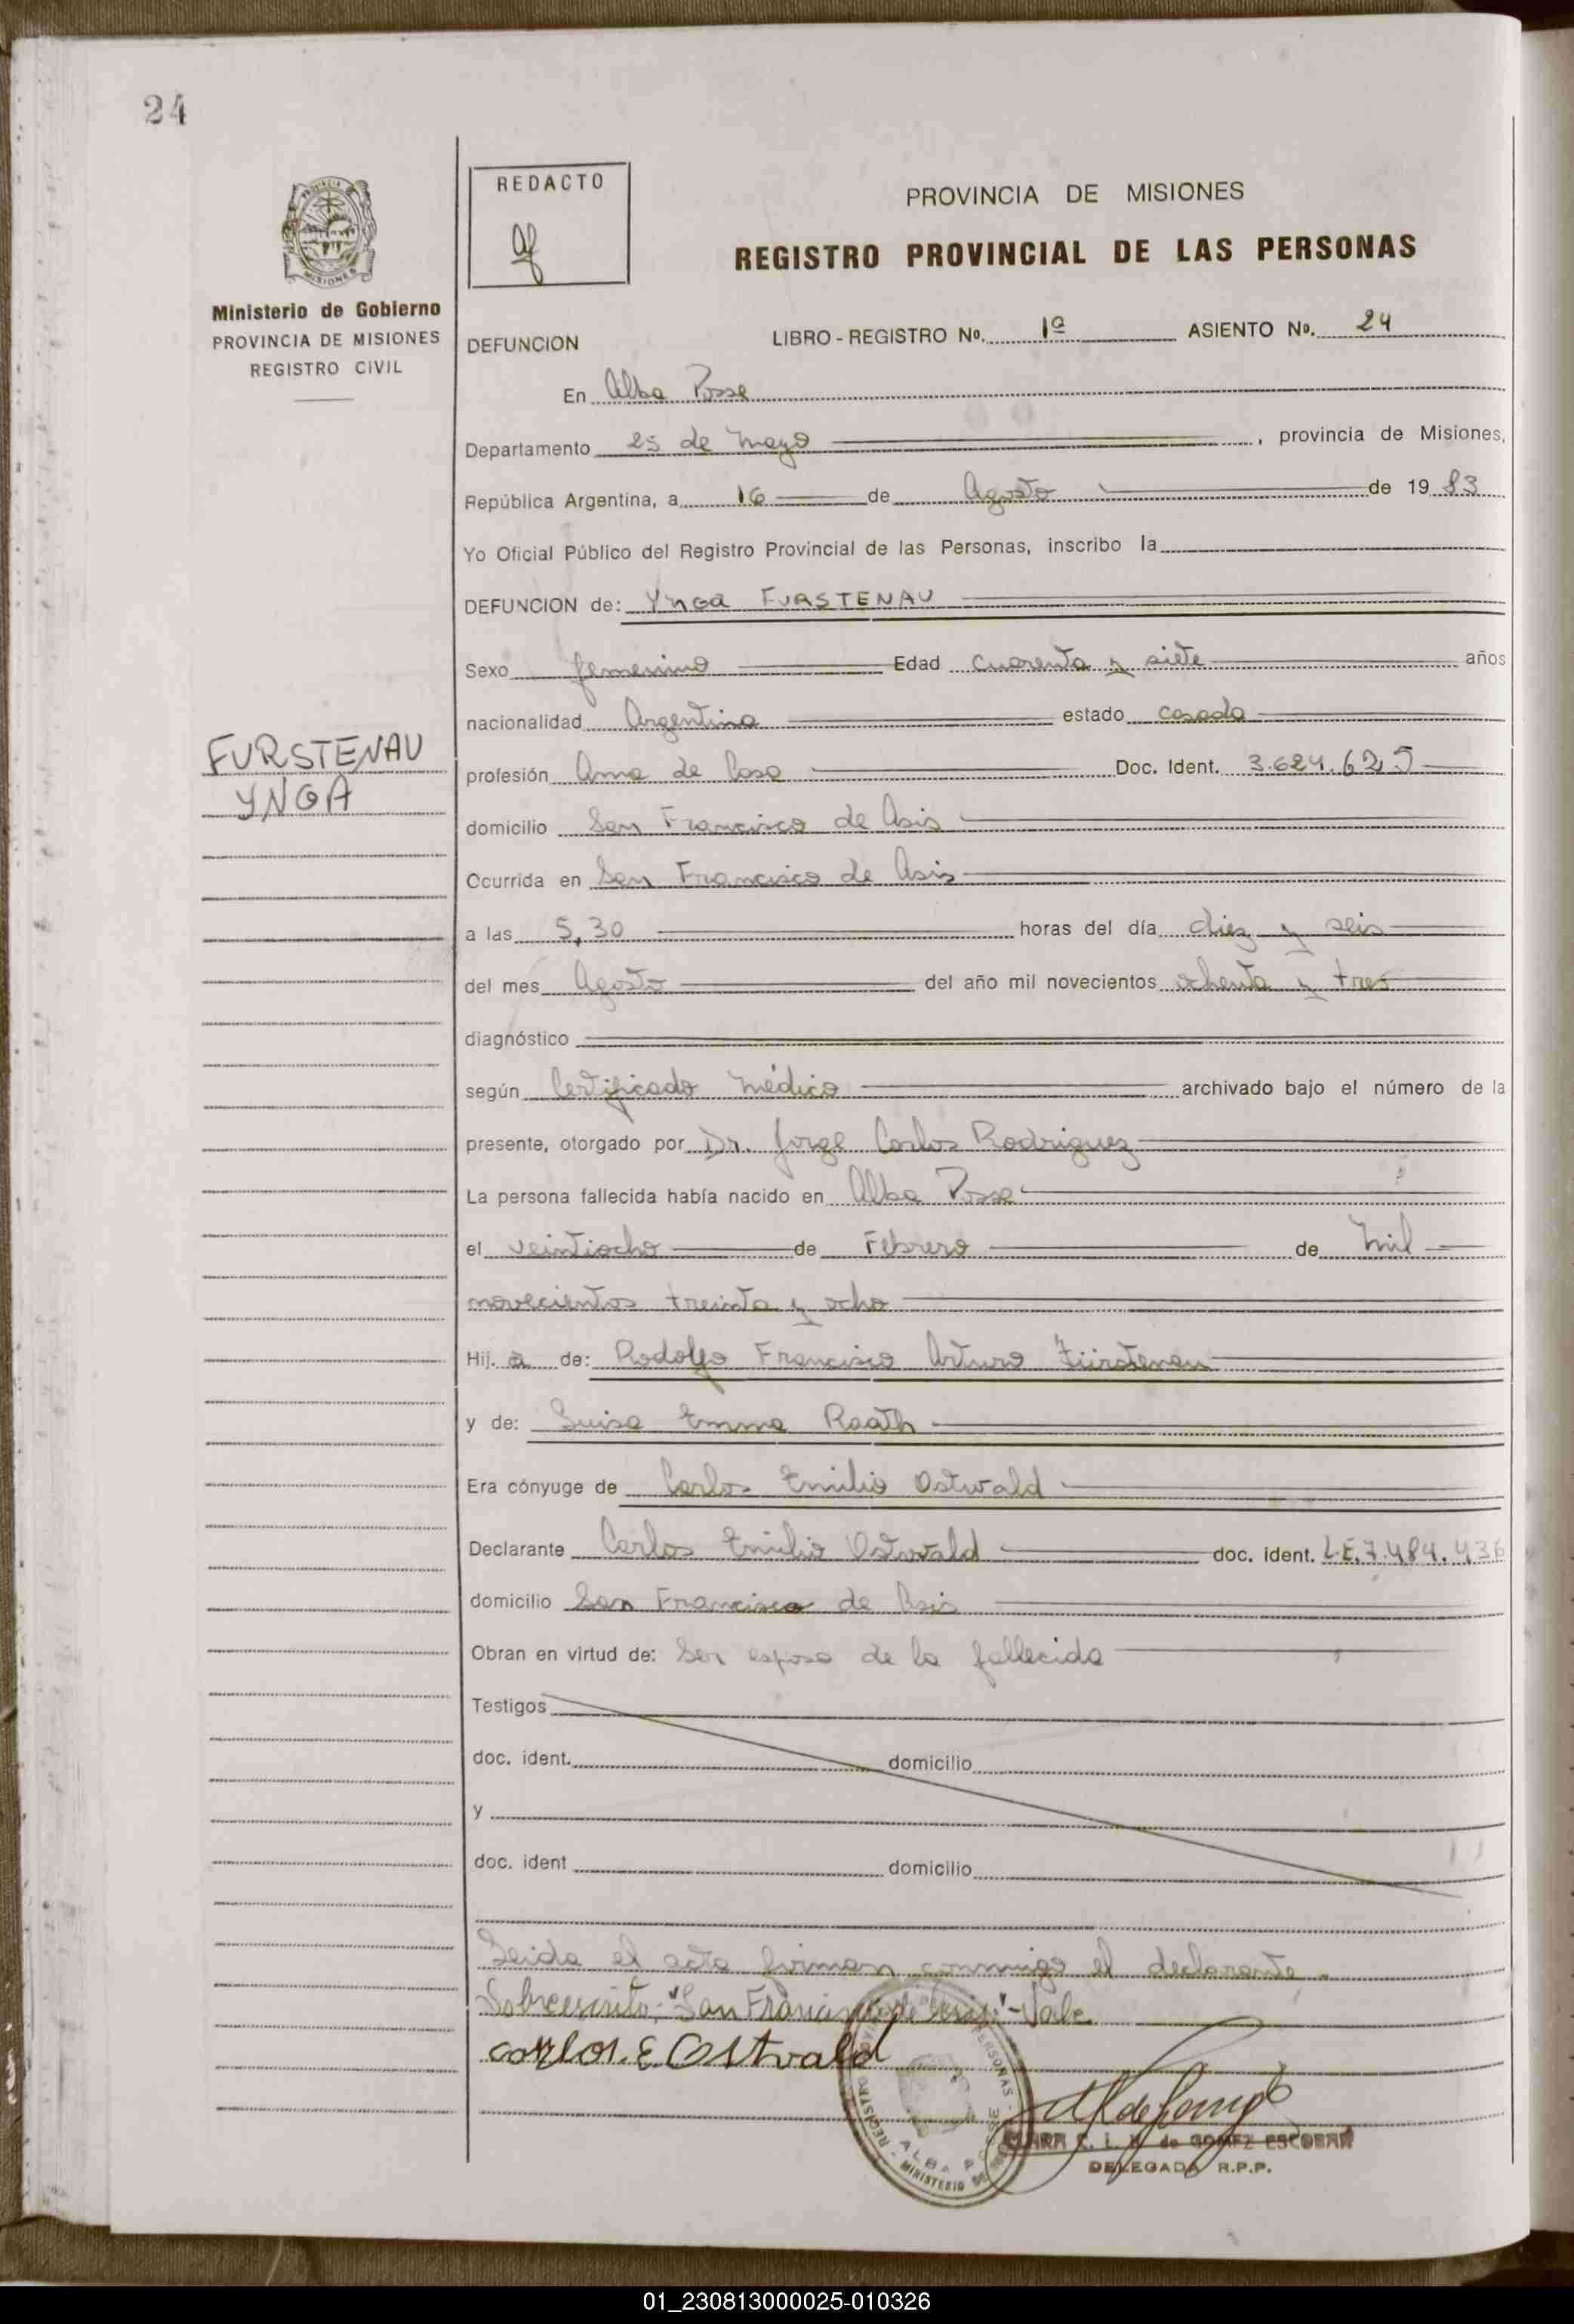 24
PROVINCIA
MISIONES
Ministerio de Gobierno
PROVINCIA DE MISIONES
REGISTRO CIVIL
REDACTO
PROVINCIA DE MISIONES
REGISTRO PROVINCIAL DE LAS PERSONAS
DEFUNCION LIBRO - REGISTRO Nº. 1º ASIENTO Nº. 24
En Alba Posse
Departamento 25 de Mayo , provincia de Misiones,
República Argentina, a 16 de Agosto de 19 83
Yo Oficial Público del Registro Provincial de las Personas, inscribo la
DEFUNCION de: Ynga FURSTENAU
Sexo femenino Edad cuarenta y siete años
nacionalidad Argentina estado casada
FURSTENAU
YNGA
profesión Ama de Casa Doc. Ident. 3.624.625
domicilio San Francisco de Asis
Ocurrida en San Francisco de Asis
a las 5,30 horas del día diez y seis
del mes Agosto del año mil novecientos ochenta y tres
diagnóstico
según Certificado Médico archivado bajo el número de la
presente, otorgado por Dr. Jorge Carlos Rodriguez
La persona fallecida había nacido en Alba Posse
el veintiocho de Febrero de Mil
novecientos treinta y ocho
Hij. a de: Rodolfo Francisco Arturo Fürstenau
y de: Luisa Emma Raath
Era cónyuge de Carlos Emilio Ostwald
Declarante Carlos Emilio Ostwald doc. ident. L.E.7.484.436
domicilio San Francisco de Asis
Obran en virtud de: Ser esposo de la fallecida
Testigos
doc. ident. domicilio
y
doc. ident domicilio
Leida el acta firman conmigo el declarante.
Sobreescrito: "San Francisco de Asis" - Vale
carlos. E Ostwald
REGISTRO PERSONAS
ALBA POSSE
MINISTERIO DE
C. I. de GOMEZ ESCOBAR
DELEGADA R.P.P.
01_230813000025-010326